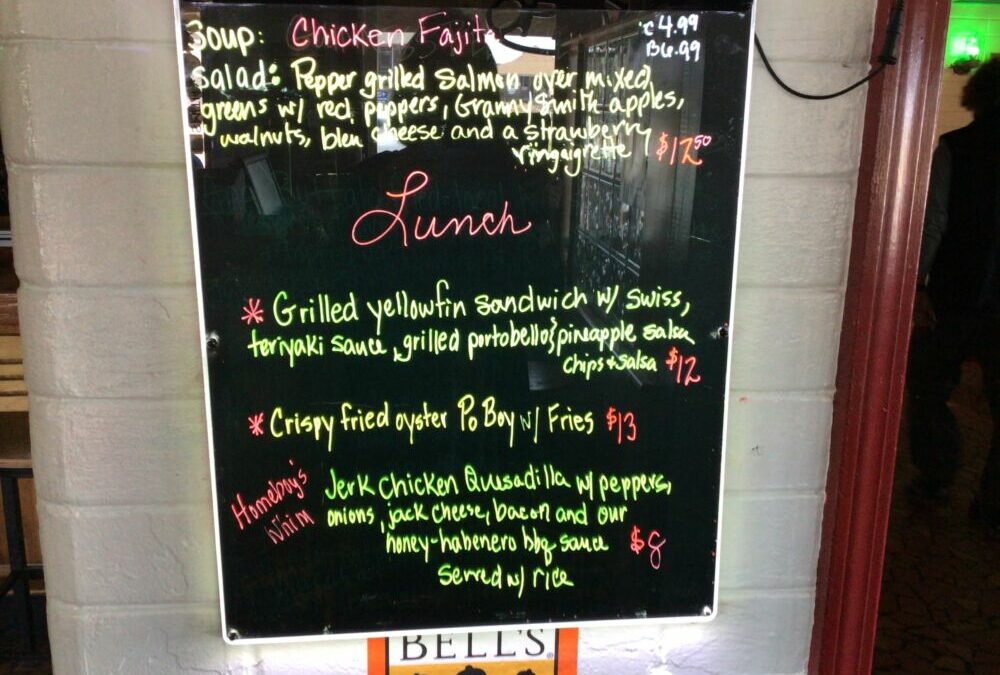 Soup: Chicken Fajita C 4.99
B 6.99
Salad: Pepper grilled Salmon over mixed
greens w/ red peppers, Granny Smith apples,
walnuts, bleu cheese and a strawberry
vingaigrette $12.50
Lunch
* Grilled yellowfin sandwich w/ swiss,
teriyaki sauce, grilled portobello & pineapple salsa
chips + salsa $12
* Crispy fried oyster Po Boy w/ Fries $13
Homeboy's
Whim
Jerk Chicken Quesadilla w/ peppers,
onions, jack cheese, bacon and our
honey-habenero bbq sauce $8
Served w/ rice
BELL'S